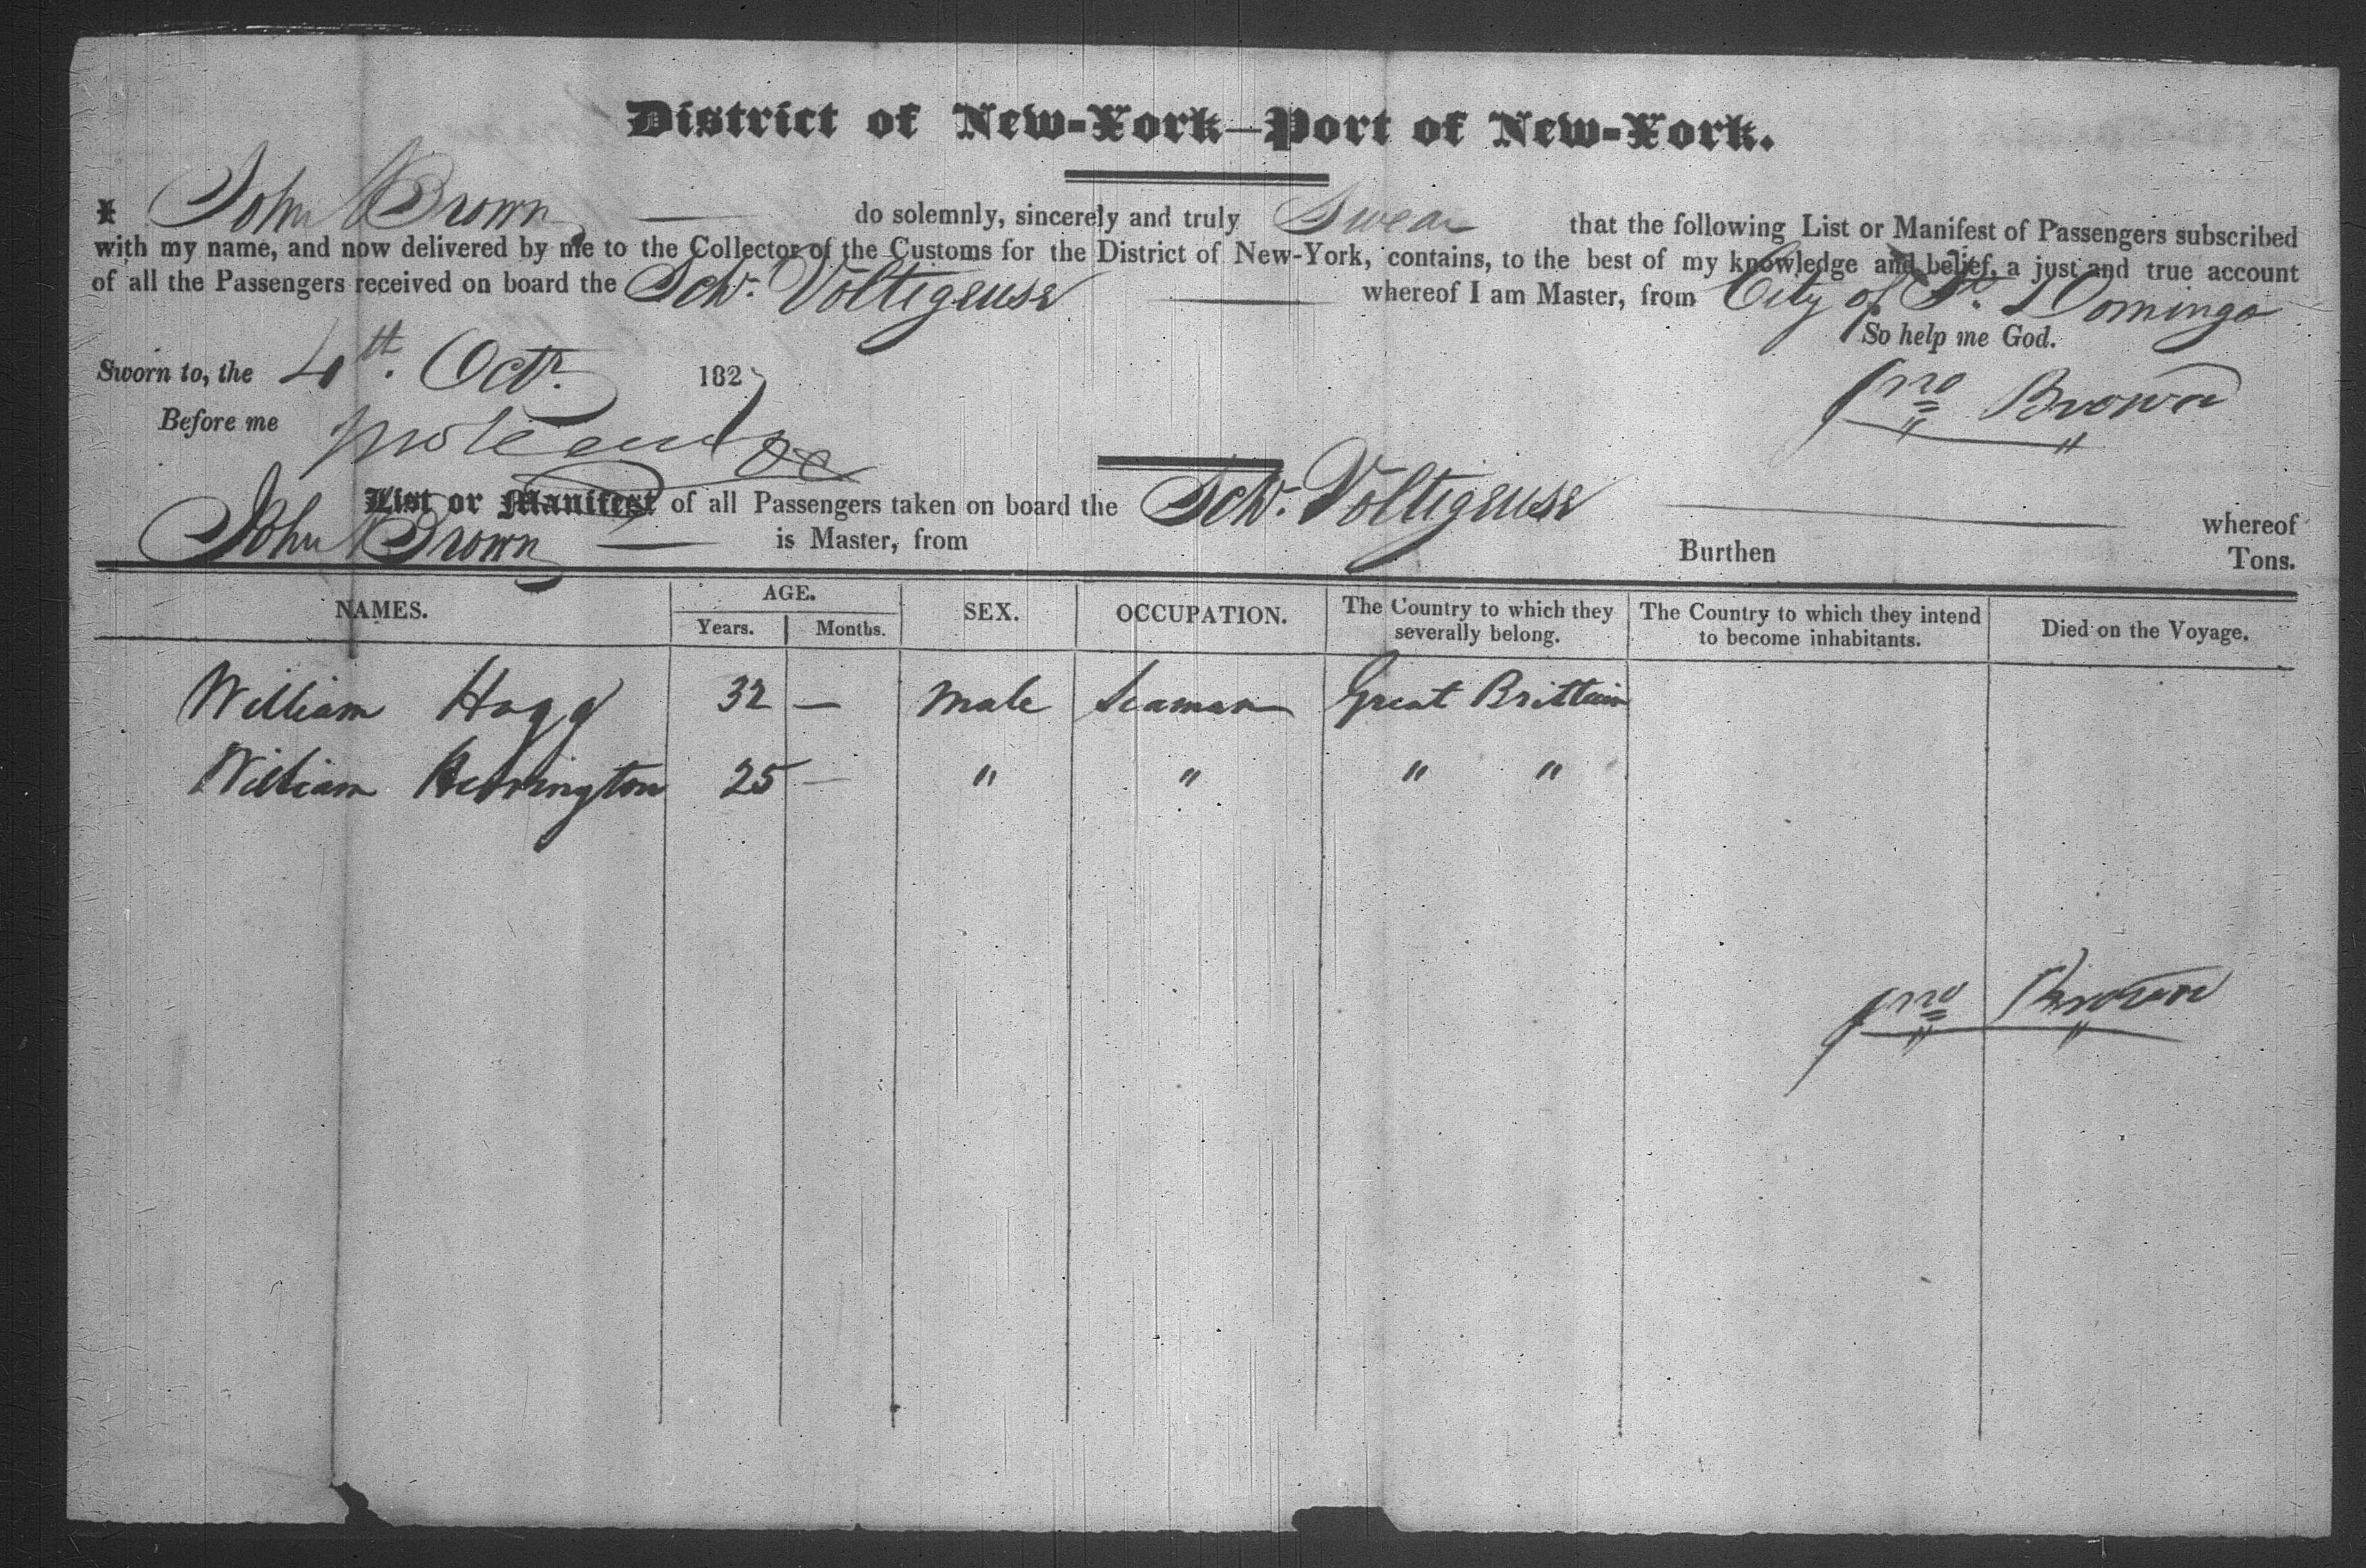 District of New-York—Port of New-York.
I John Brown — do solemnly, sincerely and truly Swear that the following List or Manifest of Passengers subscribed
with my name, and now delivered by me to the Collector of the Customs for the District of New-York, contains, to the best of my knowledge and belief, a just and true account
of all the Passengers received on board the Schr. Voltigeuse — whereof I am Master, from City of St. Domingo
So help me God.
Sworn to, the 4th. Octr. 1827
Jno Brown
Before me
List or Manifest of all Passengers taken on board the Schr. Voltigeuse — whereof
John Brown — is Master, from Burthen Tons.
NAMES. AGE. SEX. OCCUPATION. The Country to which they severally belong. The Country to which they intend to become inhabitants. Died on the Voyage.
Years. Months.
William Hogg 32 — Male Seaman Great Brittain
William 25 — " " " "
Jno Brown